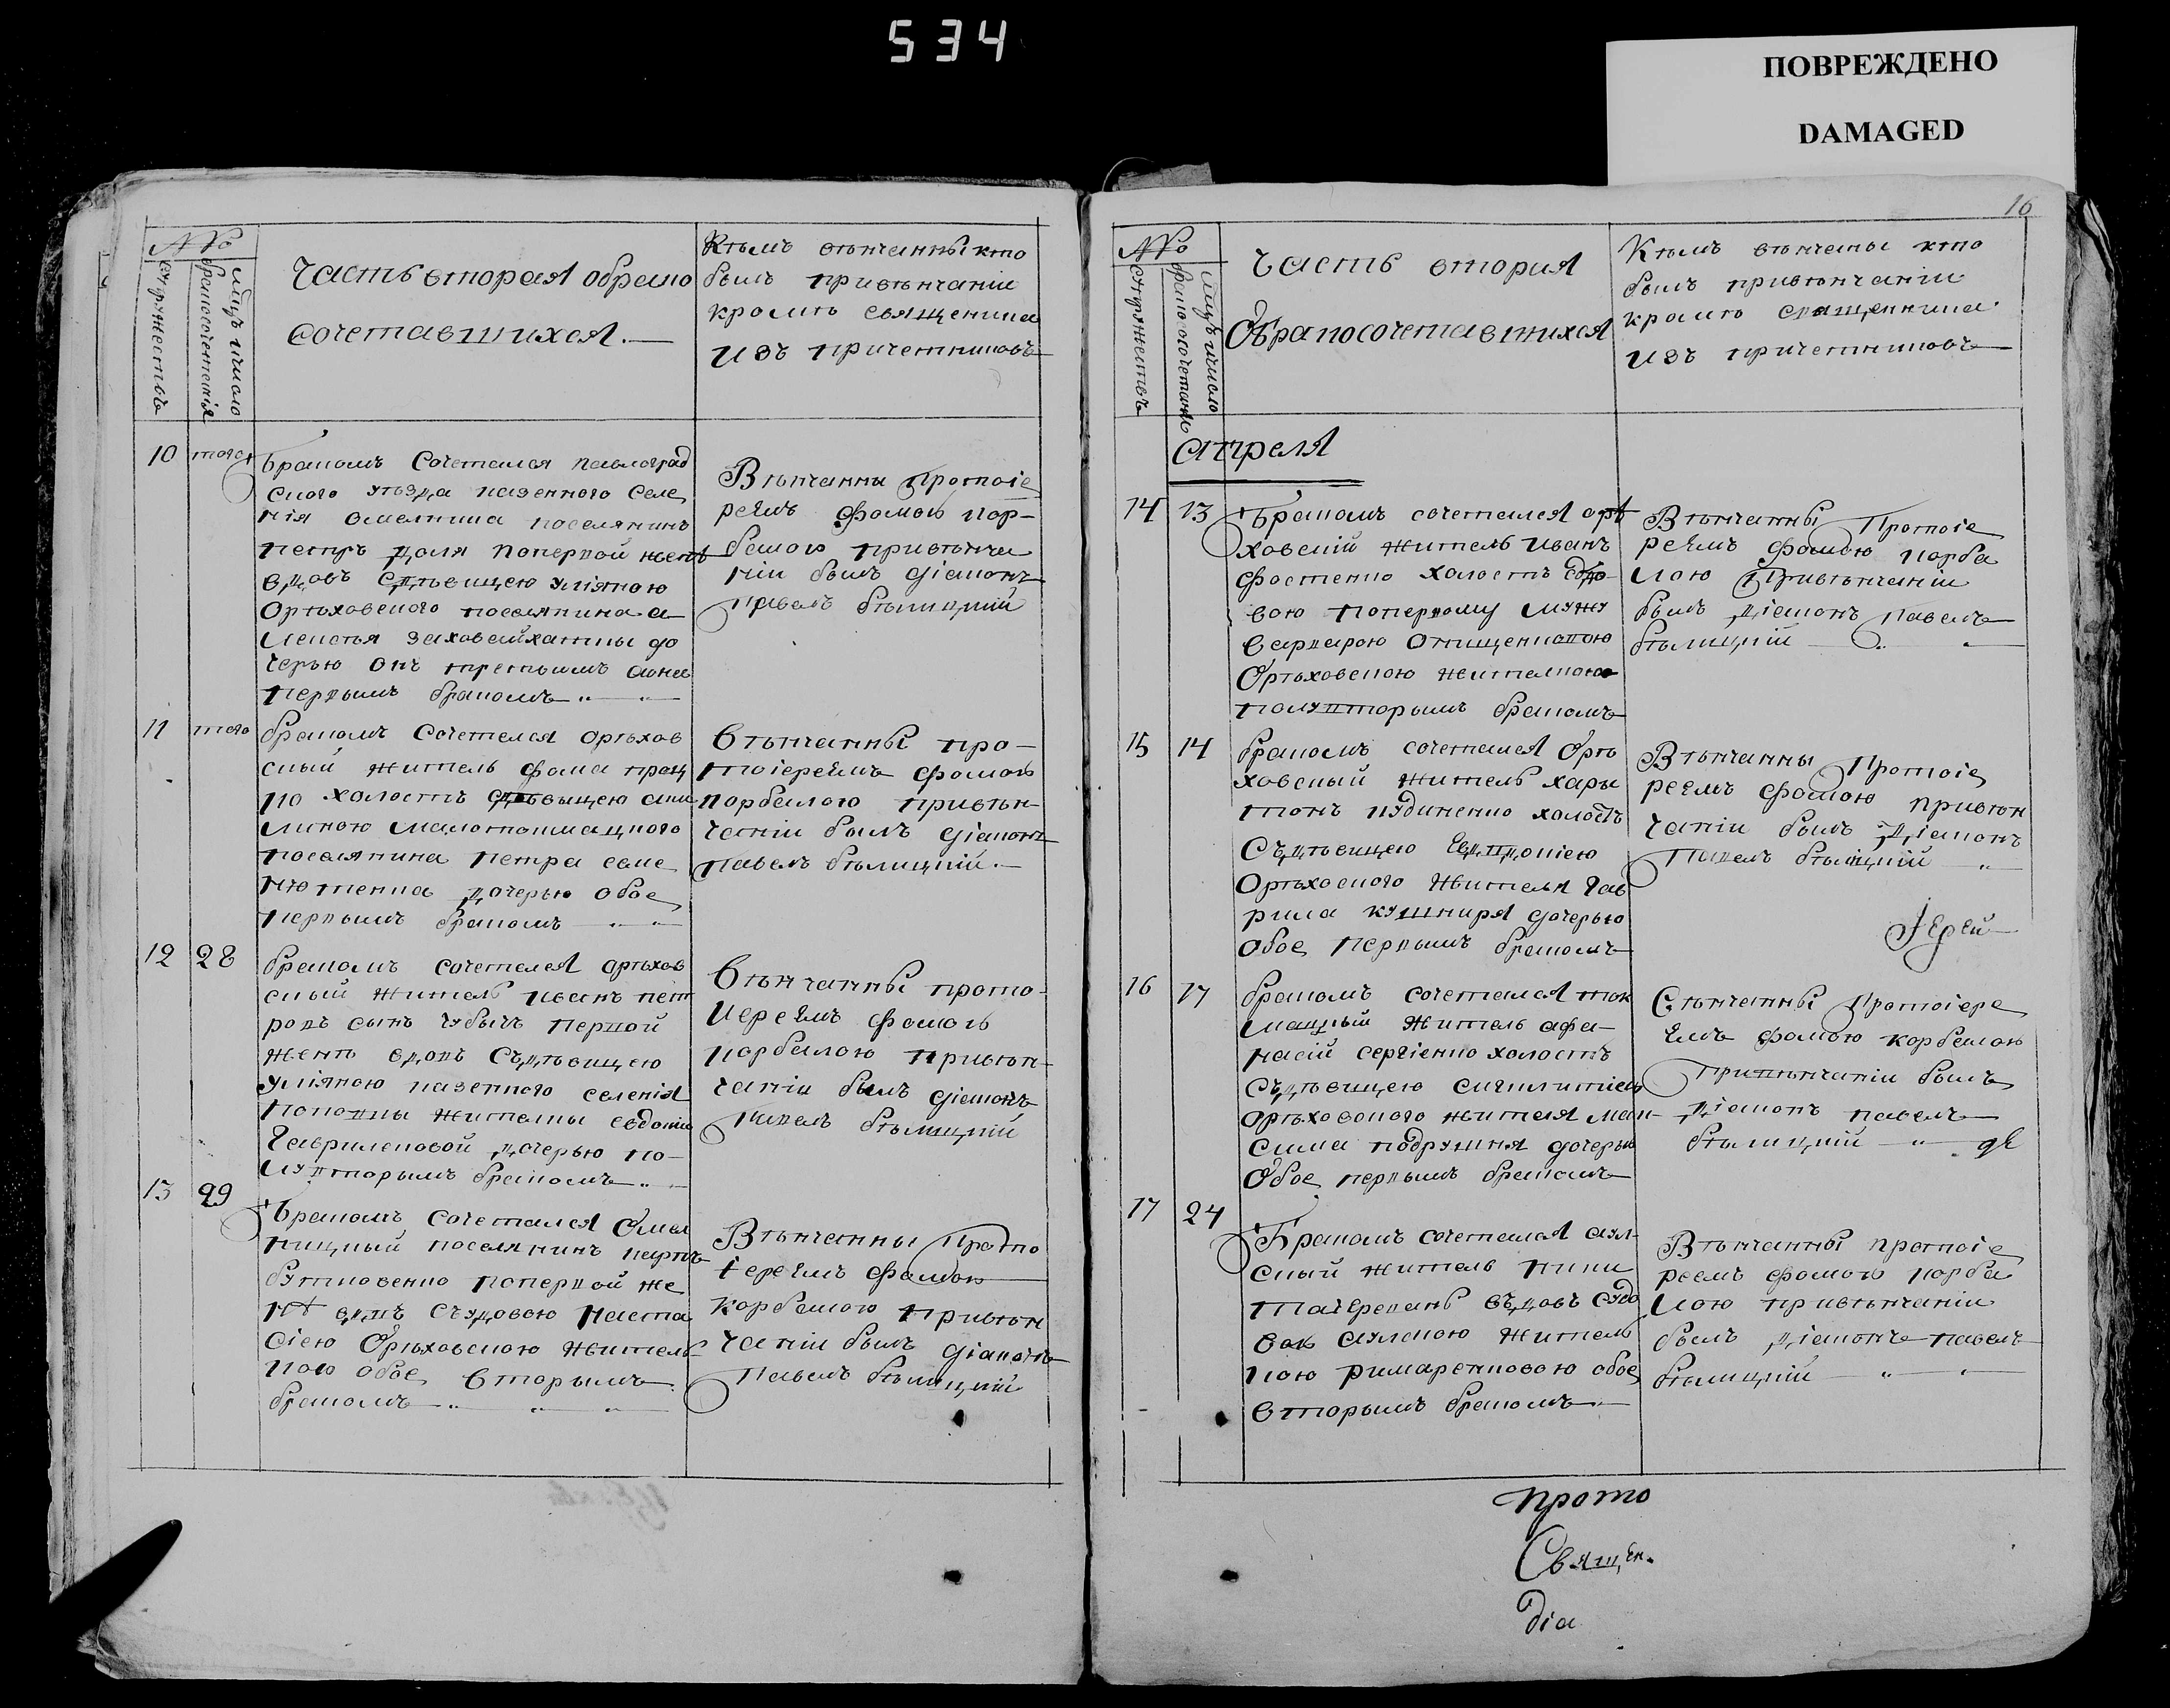 534
ПОВРЕЖДЕНО
DAMAGED
№
супружествъ
Мцъ ичисло
бракосочетанія
Часть вторая обрако
сочетавшихся.
Кѣмъ вѣнчанны кто
былъ привѣнчаніи
кромѣ священика
изъ причетниковъ
10 того
Бракомъ Сочетался павлоград
скаго уѣзда казенного Селе
нія омелника поселянинъ
петръ доля попервой женѣ
вдовъ сдѣвицею уліяною
Орѣховского поселянина а
дочерью онъ третьимъ аона
первымъ бракомъ
Вѣнчанны протоіе
реемъ фомою кор-
бакою привѣнча
ніи былъ діаконъ
павелъ бѣлицкій
11 того
бракомъ сочетался орѣхов
ский житель фома
ко холостъ сдѣвицею аки
линою малотокмацкого
поселянина петра саве
нютенка дочерью обое
первымъ бракомъ
вѣнчанны про-
тоіереемъ фомою
корбакою привѣн-
чаніи былъ діаконъ
павелъ бѣлицкій.
12 28
бракомъ сочетался орѣхов
ский житель иванъ пет
ровъ сынъ чубъ первой
женѣ вдовъ Съдѣвицею
уліяною казенного селенія
житемки евдокіи
Гавриленковой дочерью по-
лувторымъ бракомъ
вѣнчанны прото-
иереемъ фомою
корбакою привѣн-
чаніи былъ діаконъ
павелъ бѣлицкій
13 29
Бракомъ Сочетался Омел
ницкий поселянинъ
бутковенко попервой же
нѣ вдвъ Съудовою наста
сіею Орѣховскою житель
кою обое вторымъ
бракомъ
Вѣнчанны прото
іереемъ фомою
корбакою привѣн
чаніи былъ діаконъ
павелъ бѣлицкій
16
№
супружествъ
Мцъ ичисло
бракосочетанія
Часть вторая
Обракосочетавшихся
Кѣмъ вѣнчаны кто
былъ привѣнчаніи
кромѣ священника
изъ причетниковъ
апреля
14 13
Бракомъ сочетался орѣ
ховскій житель иванъ
фостенко холостъ
вою попервому мужу
варварою онищенковою
Орѣховскою жителкою
полувторымъ бракомъ
Вѣнчанны протоіе
реемъ фомою корба
кою Привѣнчаніи
былъ діаконъ павелъ
бѣлицкій
15 14
бракомъ сочетался Орѣ
ховский житель хари
тонъ кудиненко холостъ
Съдѣвицею Евдокіею
Орѣховского жителя гав
рила кушнира дочерью
обое первымъ бракомъ
Вѣнчанны протоіе
реемъ фомою привѣн
чаніи былъ діаконъ
павелъ бѣлицкій
Іерей
16 17
бракомъ сочетался ток
мацкий житель афа-
насій сергіенко холостъ
Съдѣвицею
Орѣховского жителя мак-
сима дочерью
Обое первымъ бракомъ
Вѣнчанны протоіере
емъ фомою корбакою
Привѣнчаніи былъ
діаконъ павелъ
бѣлицкій
17 24
Бракомъ сочетался аул-
ский житель ники
та черепанъ въдовъ Судо
вою аулскою житель
кою римаренковою обое
вторымъ бракомъ
Вѣнчанны протоіе
реемъ фомою корба
кою привѣнчаніи
былъ діаконъ павелъ
бѣлицкій
Прото
Священ.
Діа